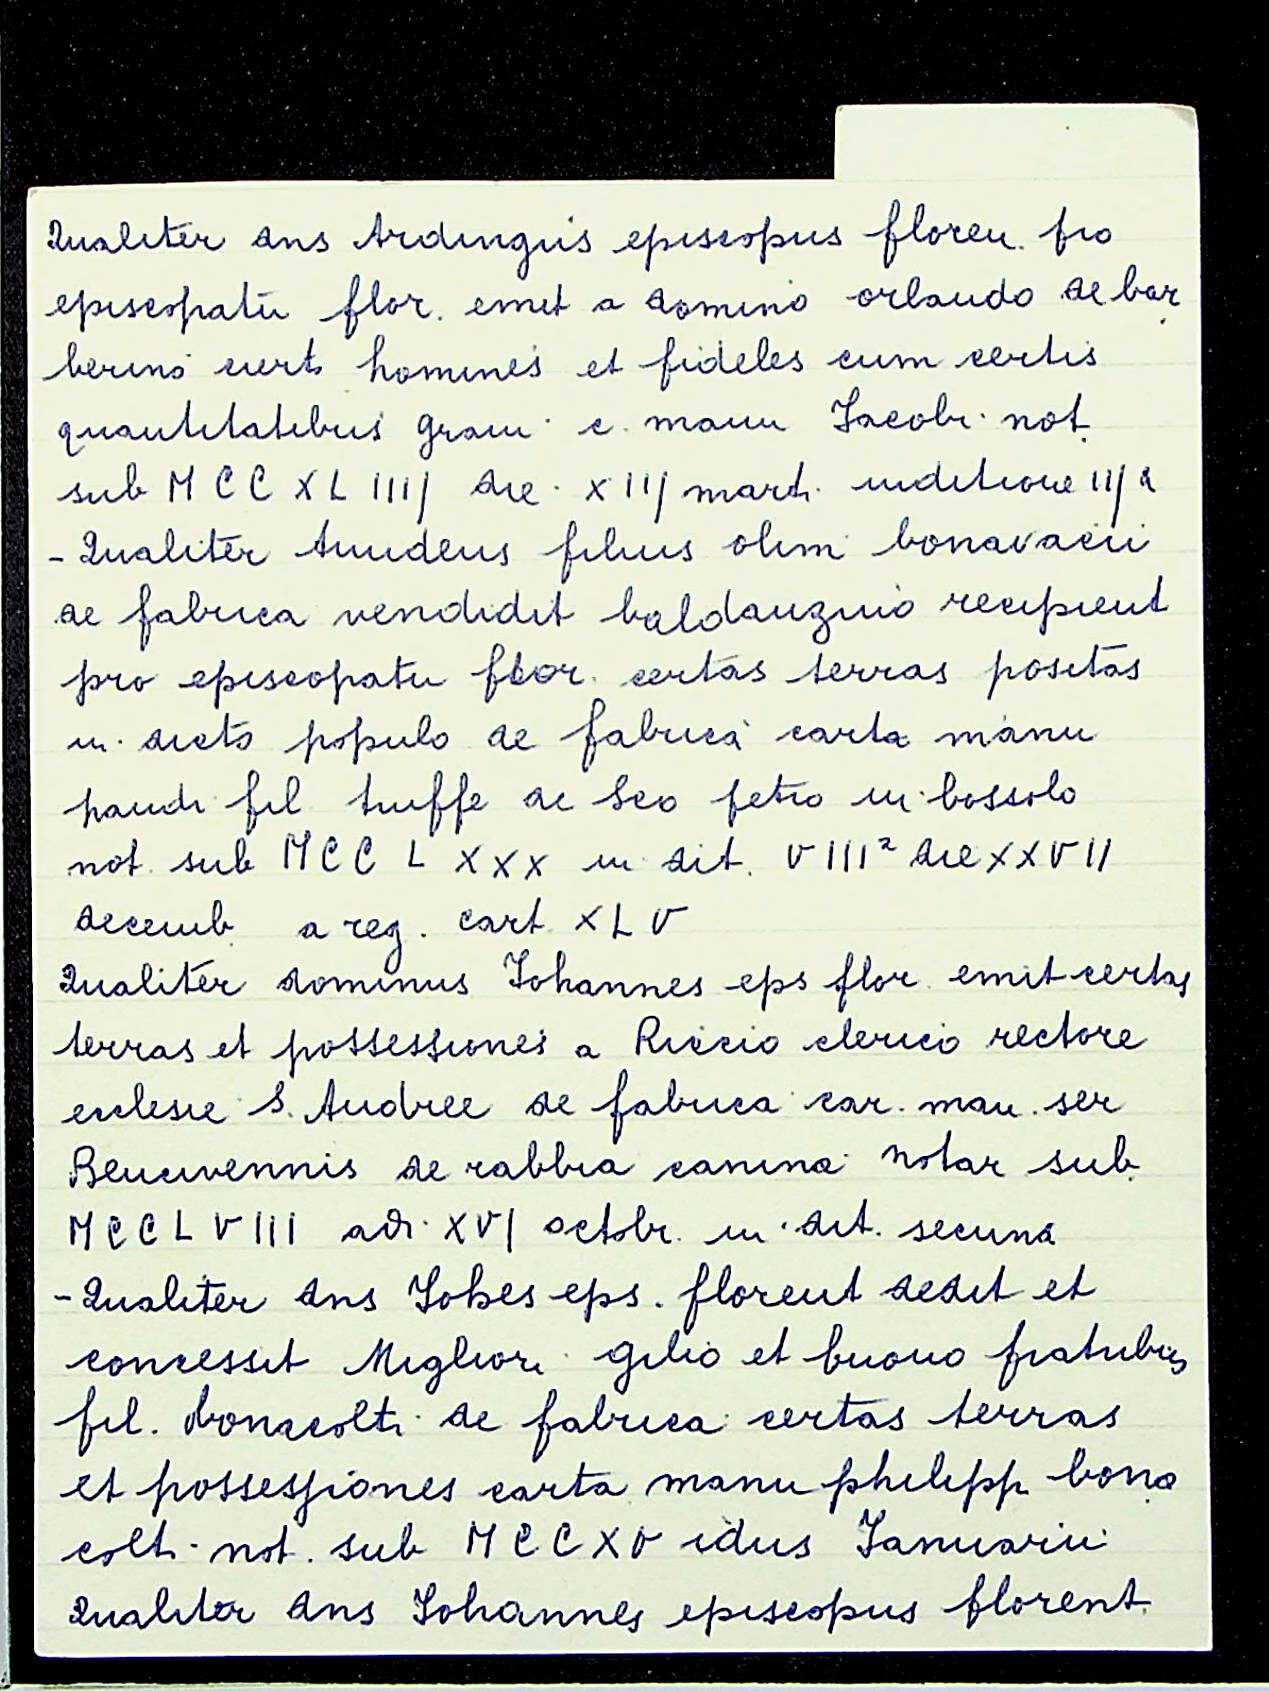 Qualiter dns Ardingus episcopus floren. pro
episcopatu flor. emit a domino orlando de bar
berino cert. homines et fideles cum certis
quantitatibus grani c. manu Jacobi not.
sub M C C X L IIII die XIII mart. inditione II/a
- Qualiter Amideus filius olim bonavacii
de fabrica vendidit baldanzino recipient
pro episcopatu flor. certas terras positas
in dicto populo de fabrica carta manu
pandi fil truffe de Sco petro in bossolo
not. sub M C C L X X X in dit. V IIIª die X X V II
decemb. a reg. cart. X L V
Qualiter dominus Johannes eps flor. emit certas
terras et possessiones a Riccio clerico rectore
ecclesie S. Andree de fabrica car. man. ser
Bencivennis de rabbia canina notar sub
M C C L V III adi XVI octobr. in dit. secunda
- Qualiter dns Johes eps. florent dedit et
concessit Migliori gilio et buono fratribus
fil. bonacolti de fabrica certas terras
et possessiones carta manu philipp bona
colti not. sub M C C X V idus Januarii
Qualiter dns Johannes episcopus florent.